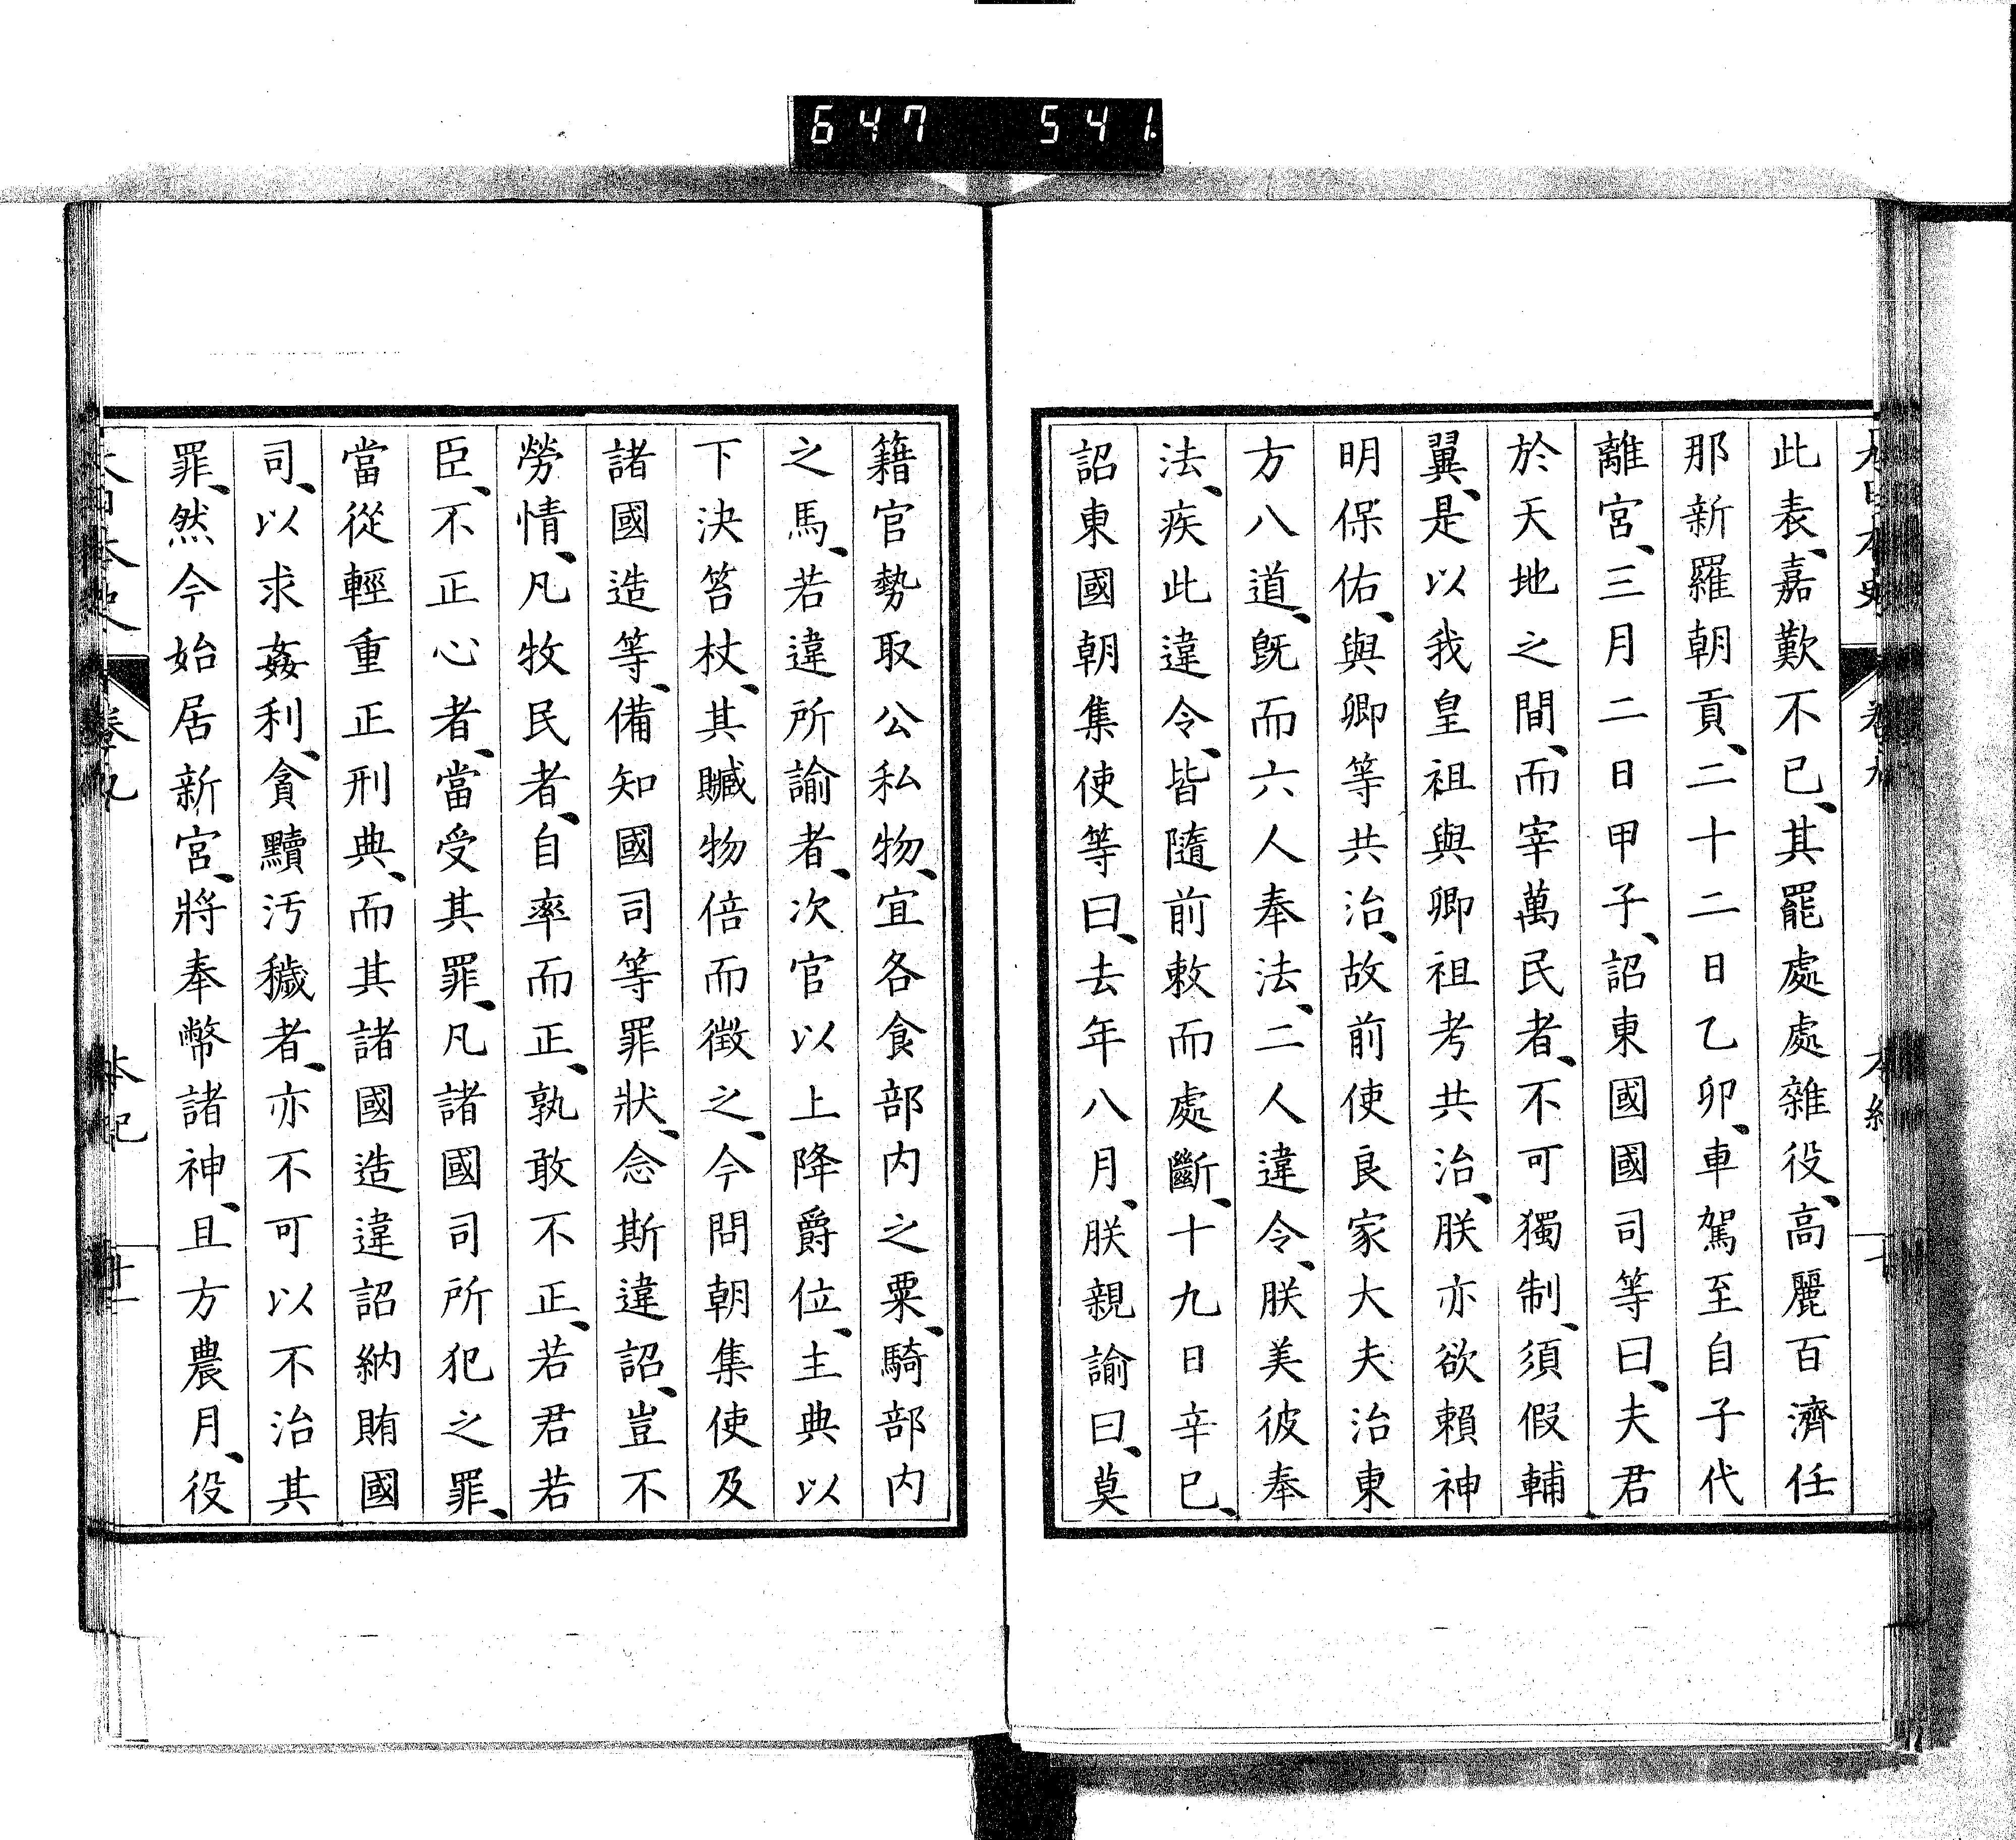 647 541
此表、嘉歎不已、其罷處處雜役、高麗百濟任
那新羅朝貢、二十二日乙卯、車駕至自子代
離宮、三月二日甲子、詔東國國司等曰、夫君
於天地之間、而宰萬民者、不可獨制、須假輔
翼、是以我皇祖與卿祖考共治、朕亦欲賴神
明保佑、與卿等共治、故前使良家大夫治東
方八道、既而六人奉法、二人違令、朕美彼奉
法、疾此違令、皆隨前敕而處斷、十九日辛巳、
詔東國朝集使等曰、去年八月、朕親諭曰、莫
籍官勢取公私物、宜各食部内之粟、騎部内
之馬、若違所諭者、次官以上降爵位、主典以
下決笞杖、其贓物倍而徵之、今問朝集使及
諸國造等、備知國司等罪狀、念斯違詔、豈不
勞情、凡牧民者、自率而正、孰敢不正、若君若
臣、不正心者、當受其罪、凡諸國司所犯之罪、
當從輕重正刑典、而其諸國造違詔納賄國
司、以求姦利、貪黷汚穢者、亦不可以不治其
罪、然今始居新宮、將奉幣諸神、且方農月、役
大日本史 卷九 本紀 十一